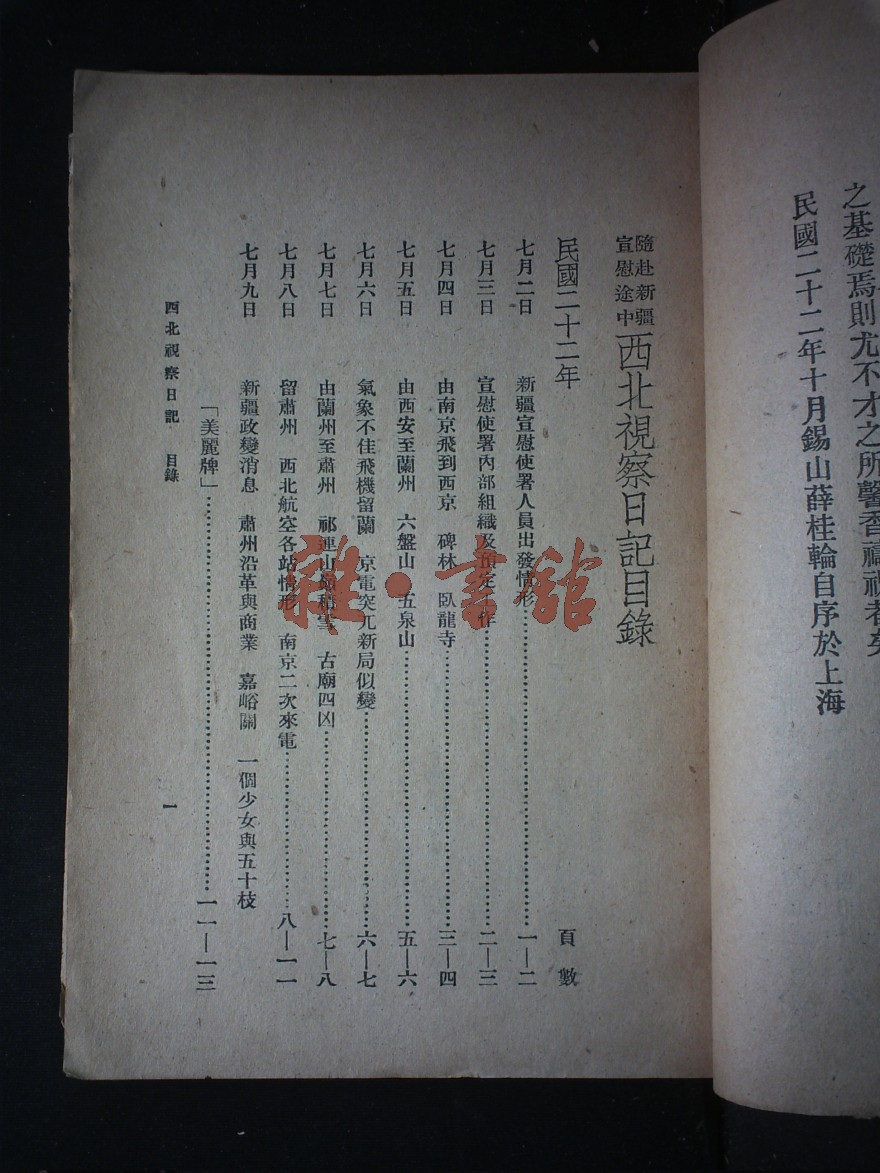 之基礎焉則尤不才之所馨香禱祝者矣
民國二十二年十月錫山薛桂輪自序於上海
隨赴新疆
宣慰途中
西北視察日記目錄
民國二十二年 頁數
七月二日 新疆宣慰使署人員出發情形 一—二
七月三日 宣慰使署內部組織及預定工作 二—三
七月四日 由南京飛到西京 碑林 臥龍寺 三—四
七月五日 由西安至蘭州 六盤山 五泉山 五—六
七月六日 氣象不佳飛機留蘭 京電突兀新局似變 六—七
七月七日 由蘭州至肅州 祁連山嶺積雪 古廟四凶 七—八
七月八日 留肅州 西北航空各站情形 南京二次來電 八—一一
七月九日 新疆政變消息 肅州沿革與商業 嘉峪關 一個少女與五十枝
「美麗牌」 一一—一三
西北視察日記 目錄 一
雜·書館